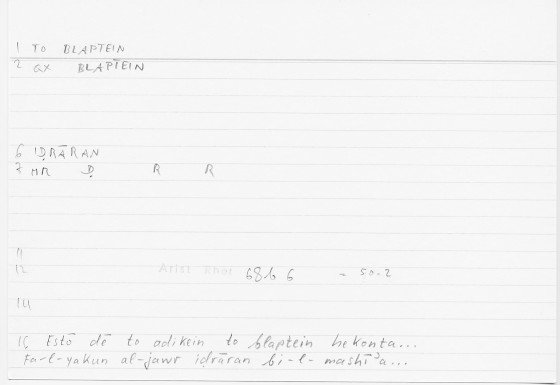 1 TO BLAPTEIN
2 GX BLAPTEIN
6 IḌRĀRAN
7 MR Ḍ R R
11
12 Arist Rhet 68b6 - 50.2
14
15 Estō dē to adikein to blaptein hekonta...
Fa-l-yakun al-jawr iḍrāran bi-l-mashīʾa...